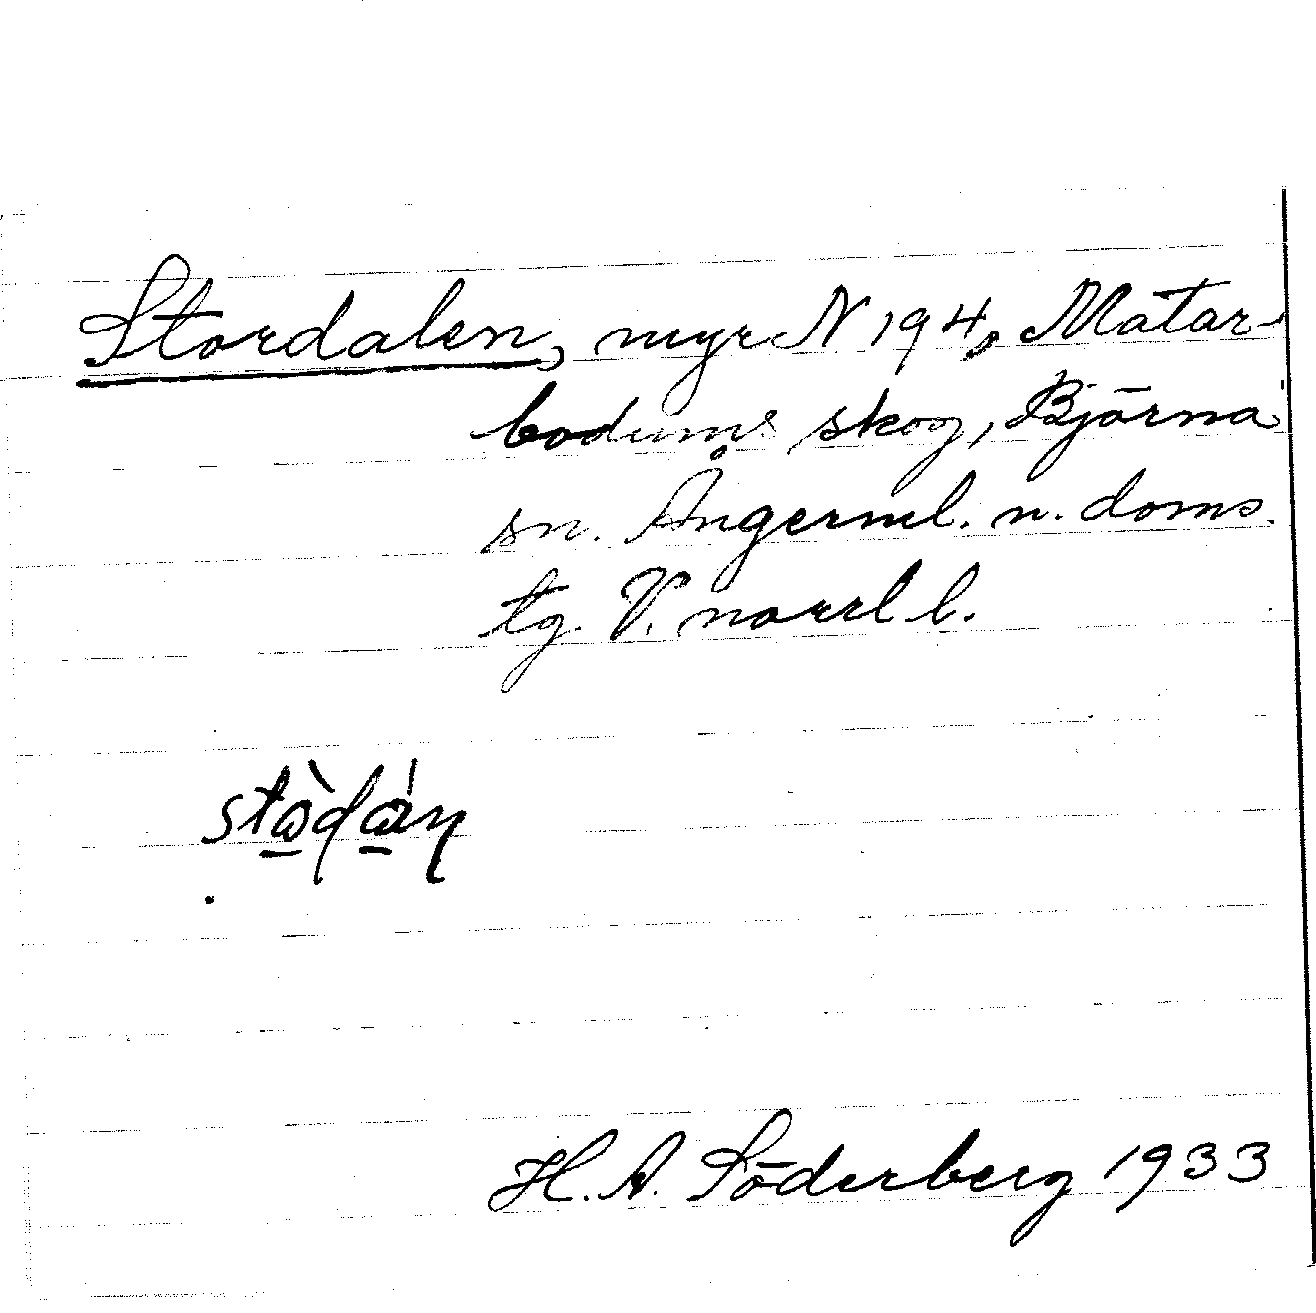 Stordalen, myr N 194, Matar-
bodums skog, Björna
sn. Ångerml. n. doms.
tg. V. norrl l.
H. A. Söderberg 1933